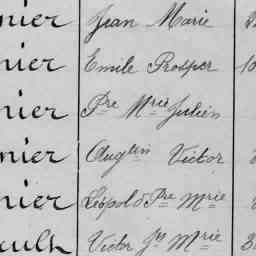 nier Jean Marie
nier Emile Prosper 10
nier Pre Mrie Julien
nier Augtin Victor
nier Léopold Pre Mrie
ault Victor Jh Mrie 3